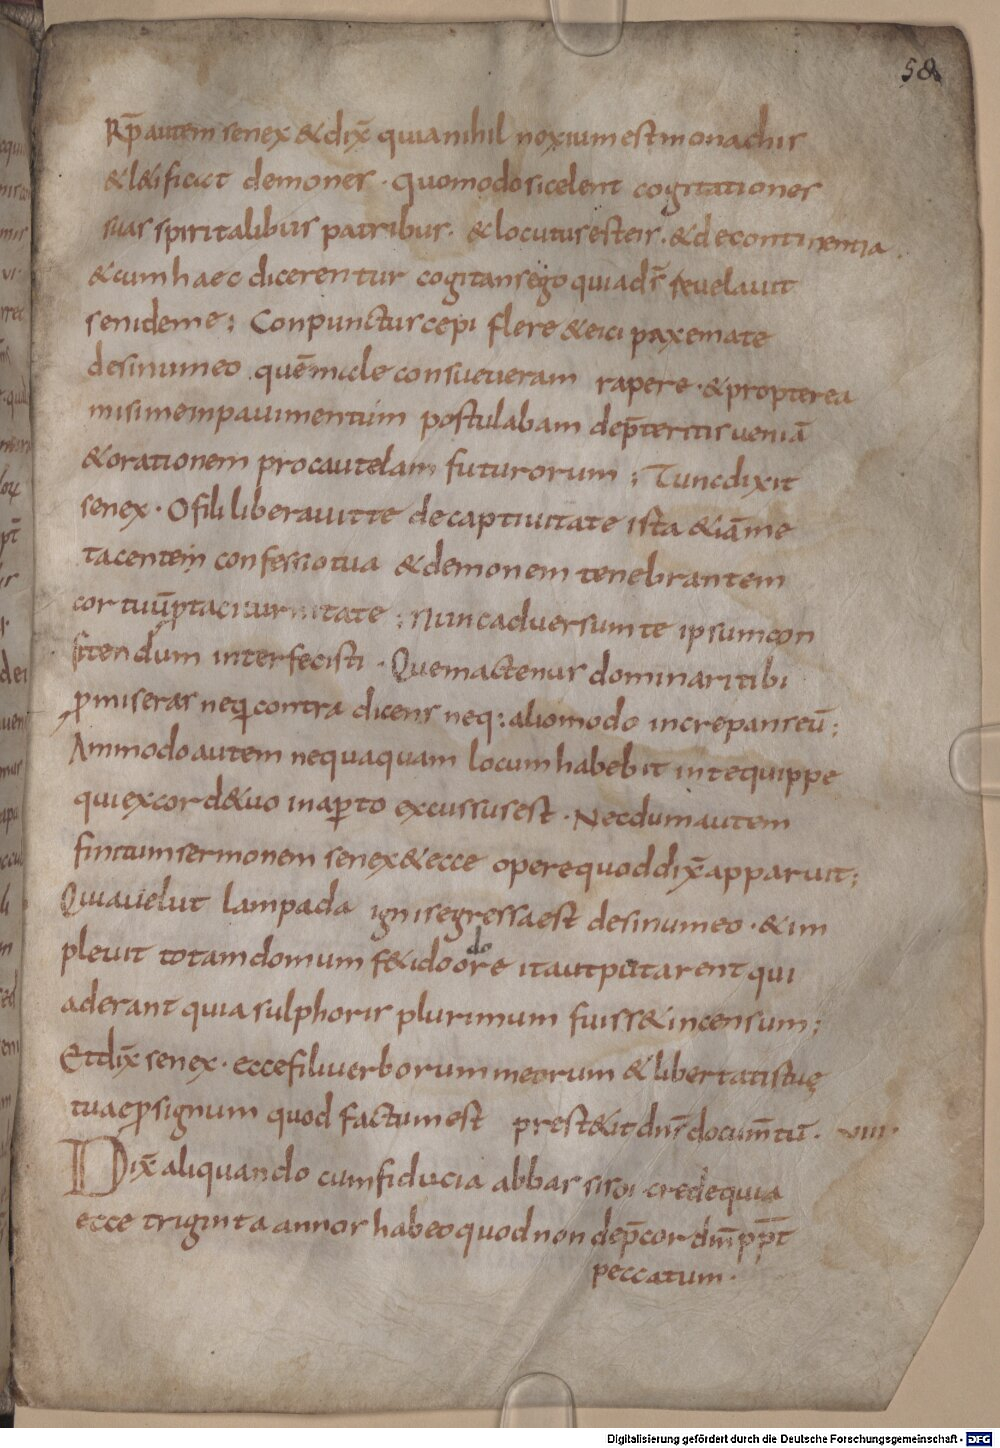 58
Rp̄ autem senex & dix̄ quia nihil noxium est monachis
& l&ificat demones · quomodo si celent cogitationes
suas spiritalibus patribus · & locutus est eis · & de continentia ·
& cum haec dicerentur cogitans ego quia dn̄s revelavit
seni de me ; Conpunctus cepi flere & eici paxemate
de sinu meo quē male consueveram rapere · & propterea
misi me in pavimentum postulabam de p̄teritis veniā
& orationem pro cautelam futurorum ; Tunc dixit
senex · O fili liberavit te de captivitate ista & iā me
tacentem confessio tua & demonem tenebrantem
cor tuū p taciturnitate ; Nunc adversum te ipsum con
fitendum interfecisti · Quem actenus dominari tibi
pmiseras neq; contra dicens neq: alio modo increpans eū ;
Ammodo autem nequaquam locum habebit in te quippe
qui ex cord& uo in apto excussus est · Necdum autem
finitum sermonem senex & ecce opere quod dix̄ apparuit ;
Quia velut lampada ignis egressa est de sinu meo · & im
plevit totam domum f&ido odore ita ut putarent qui
aderant quia sulphoris plurimum fuiss& incensum ;
Et dix̄ senex · ecce fili verborum meorum & libertatis tuę
tuae p signum quod factum est prest&it dn̄s documtū · viii ·
Dix̄ aliquando cum fiducia abbas sisoi · crede quia
ecce triginta annos habeo quod non dep̄cor dm̄ pp̄t
peccatum ·
Digitalisierung gefördert durch die Deutsche Forschungsgemeinschaft - DFG